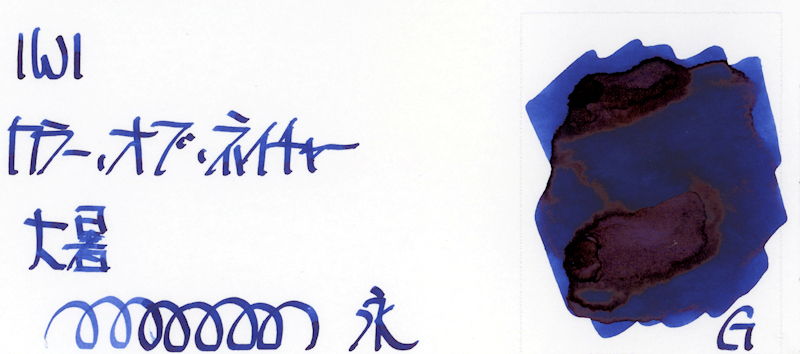 IWI
カラー・オブ・ネイチャー
大暑
永
G